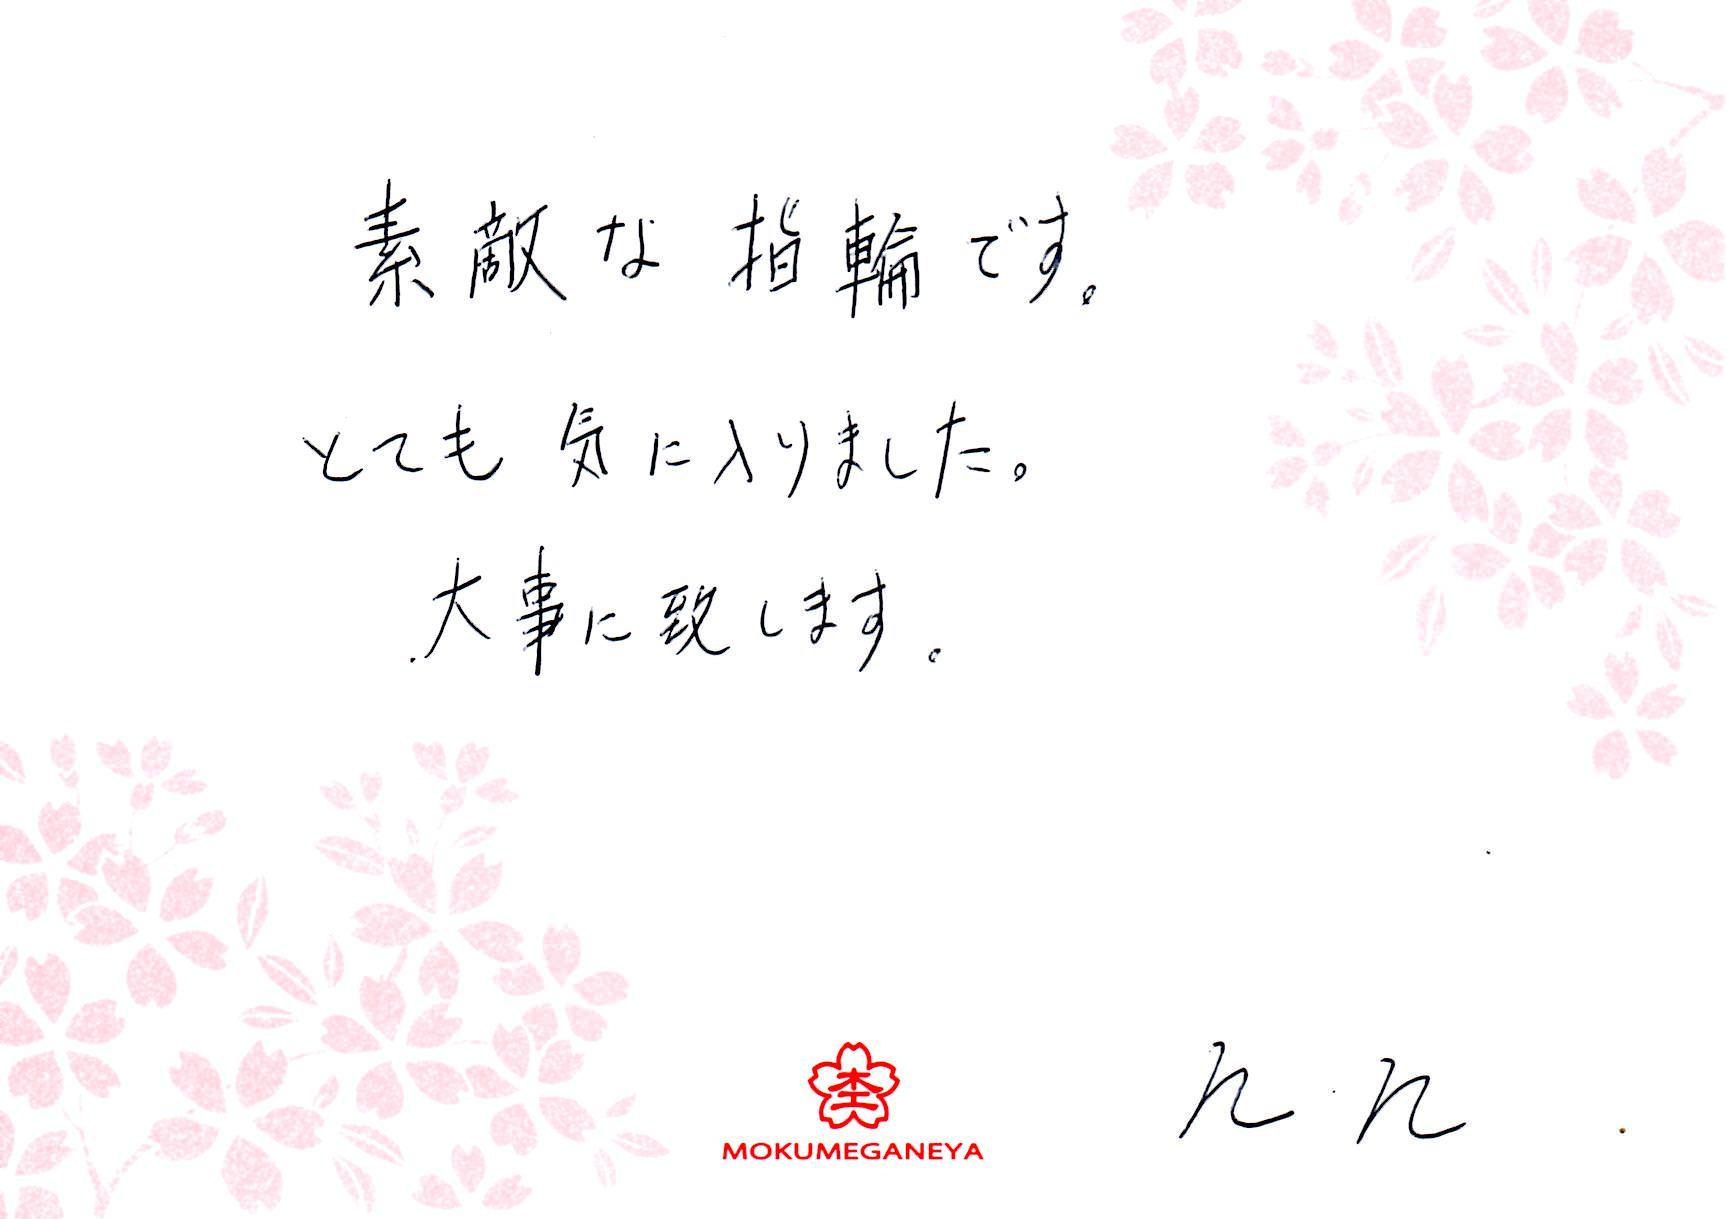 素敵な指輪です。
とても気に入りました。
大事に致します。
MOKUMEGANEYA
n.n